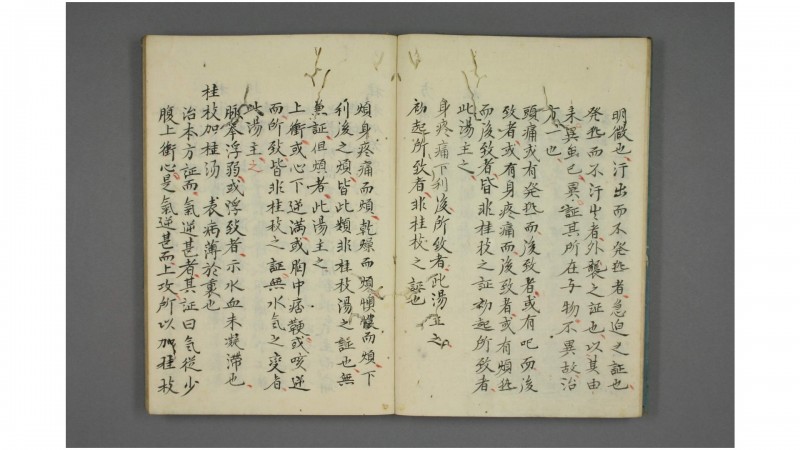 明徴也汗出而不発熱者急迫之証也
発熱而不汗出者外襲之証也以其由
来異虽已異証其所在与物不異故治
方一也
頭痛或有発熱而後致者或有吐而後
致者或有身疼痛而後致者或有煩熱
而後致者皆非桂枝之証初起所致者
此湯主之
身疼痛下利後所致者此湯宜之
初起所致者非桂枝之証也
煩身疼痛而煩乾燥而煩懊憹而煩下
利後之煩皆此類非桂枝湯之証也無
兼証但煩者此湯主之
上衝或心下逆満或胸中痞鞕或咳逆
而所致皆非桂枝之証無水気之変者
此湯主之
脈本浮弱或浮数者示水血未凝滞也
桂枝加桂湯 表病薄於裏也
治本方証而気逆甚者其証曰気従少
腹上衝心是気逆甚而上攻所以加桂枝